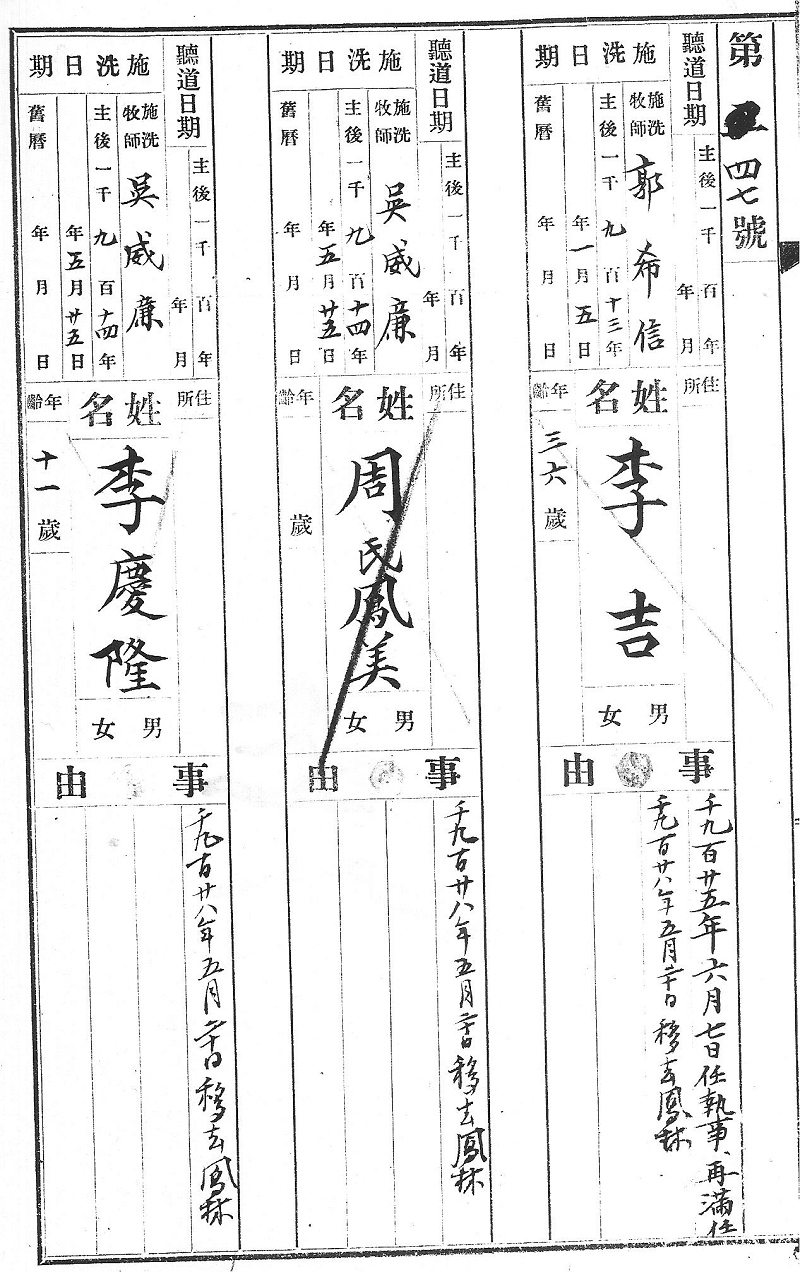 第四七號
聽道日期
主後一千 百 年
年 月
施洗日期
施洗牧師 郭希信
主後一千九百十三年
年一月五日
舊曆 年 月 日
住所
姓名
李吉
男 女
年齡
三六歲
事由
千九百廿五年六月七日任執事、再滿任
千九百廿八年五月二十日移去鳳林
聽道日期
主後一千 百 年
年 月
施洗日期
施洗牧師 吳威廉
主後一千九百十四年
年五月廿五日
舊曆 年 月 日
住所
姓名
周氏鳳美
男 女
年齡
歲
事由
千九百廿八年五月二十日移去鳳林
聽道日期
主後一千 百 年
年 月
施洗日期
施洗牧師 吳威廉
主後一千九百十四年
年五月廿五日
舊曆 年 月 日
住所
姓名
李慶隆
男 女
年齡
十一歲
事由
千九百廿八年五月二十日移去鳳林